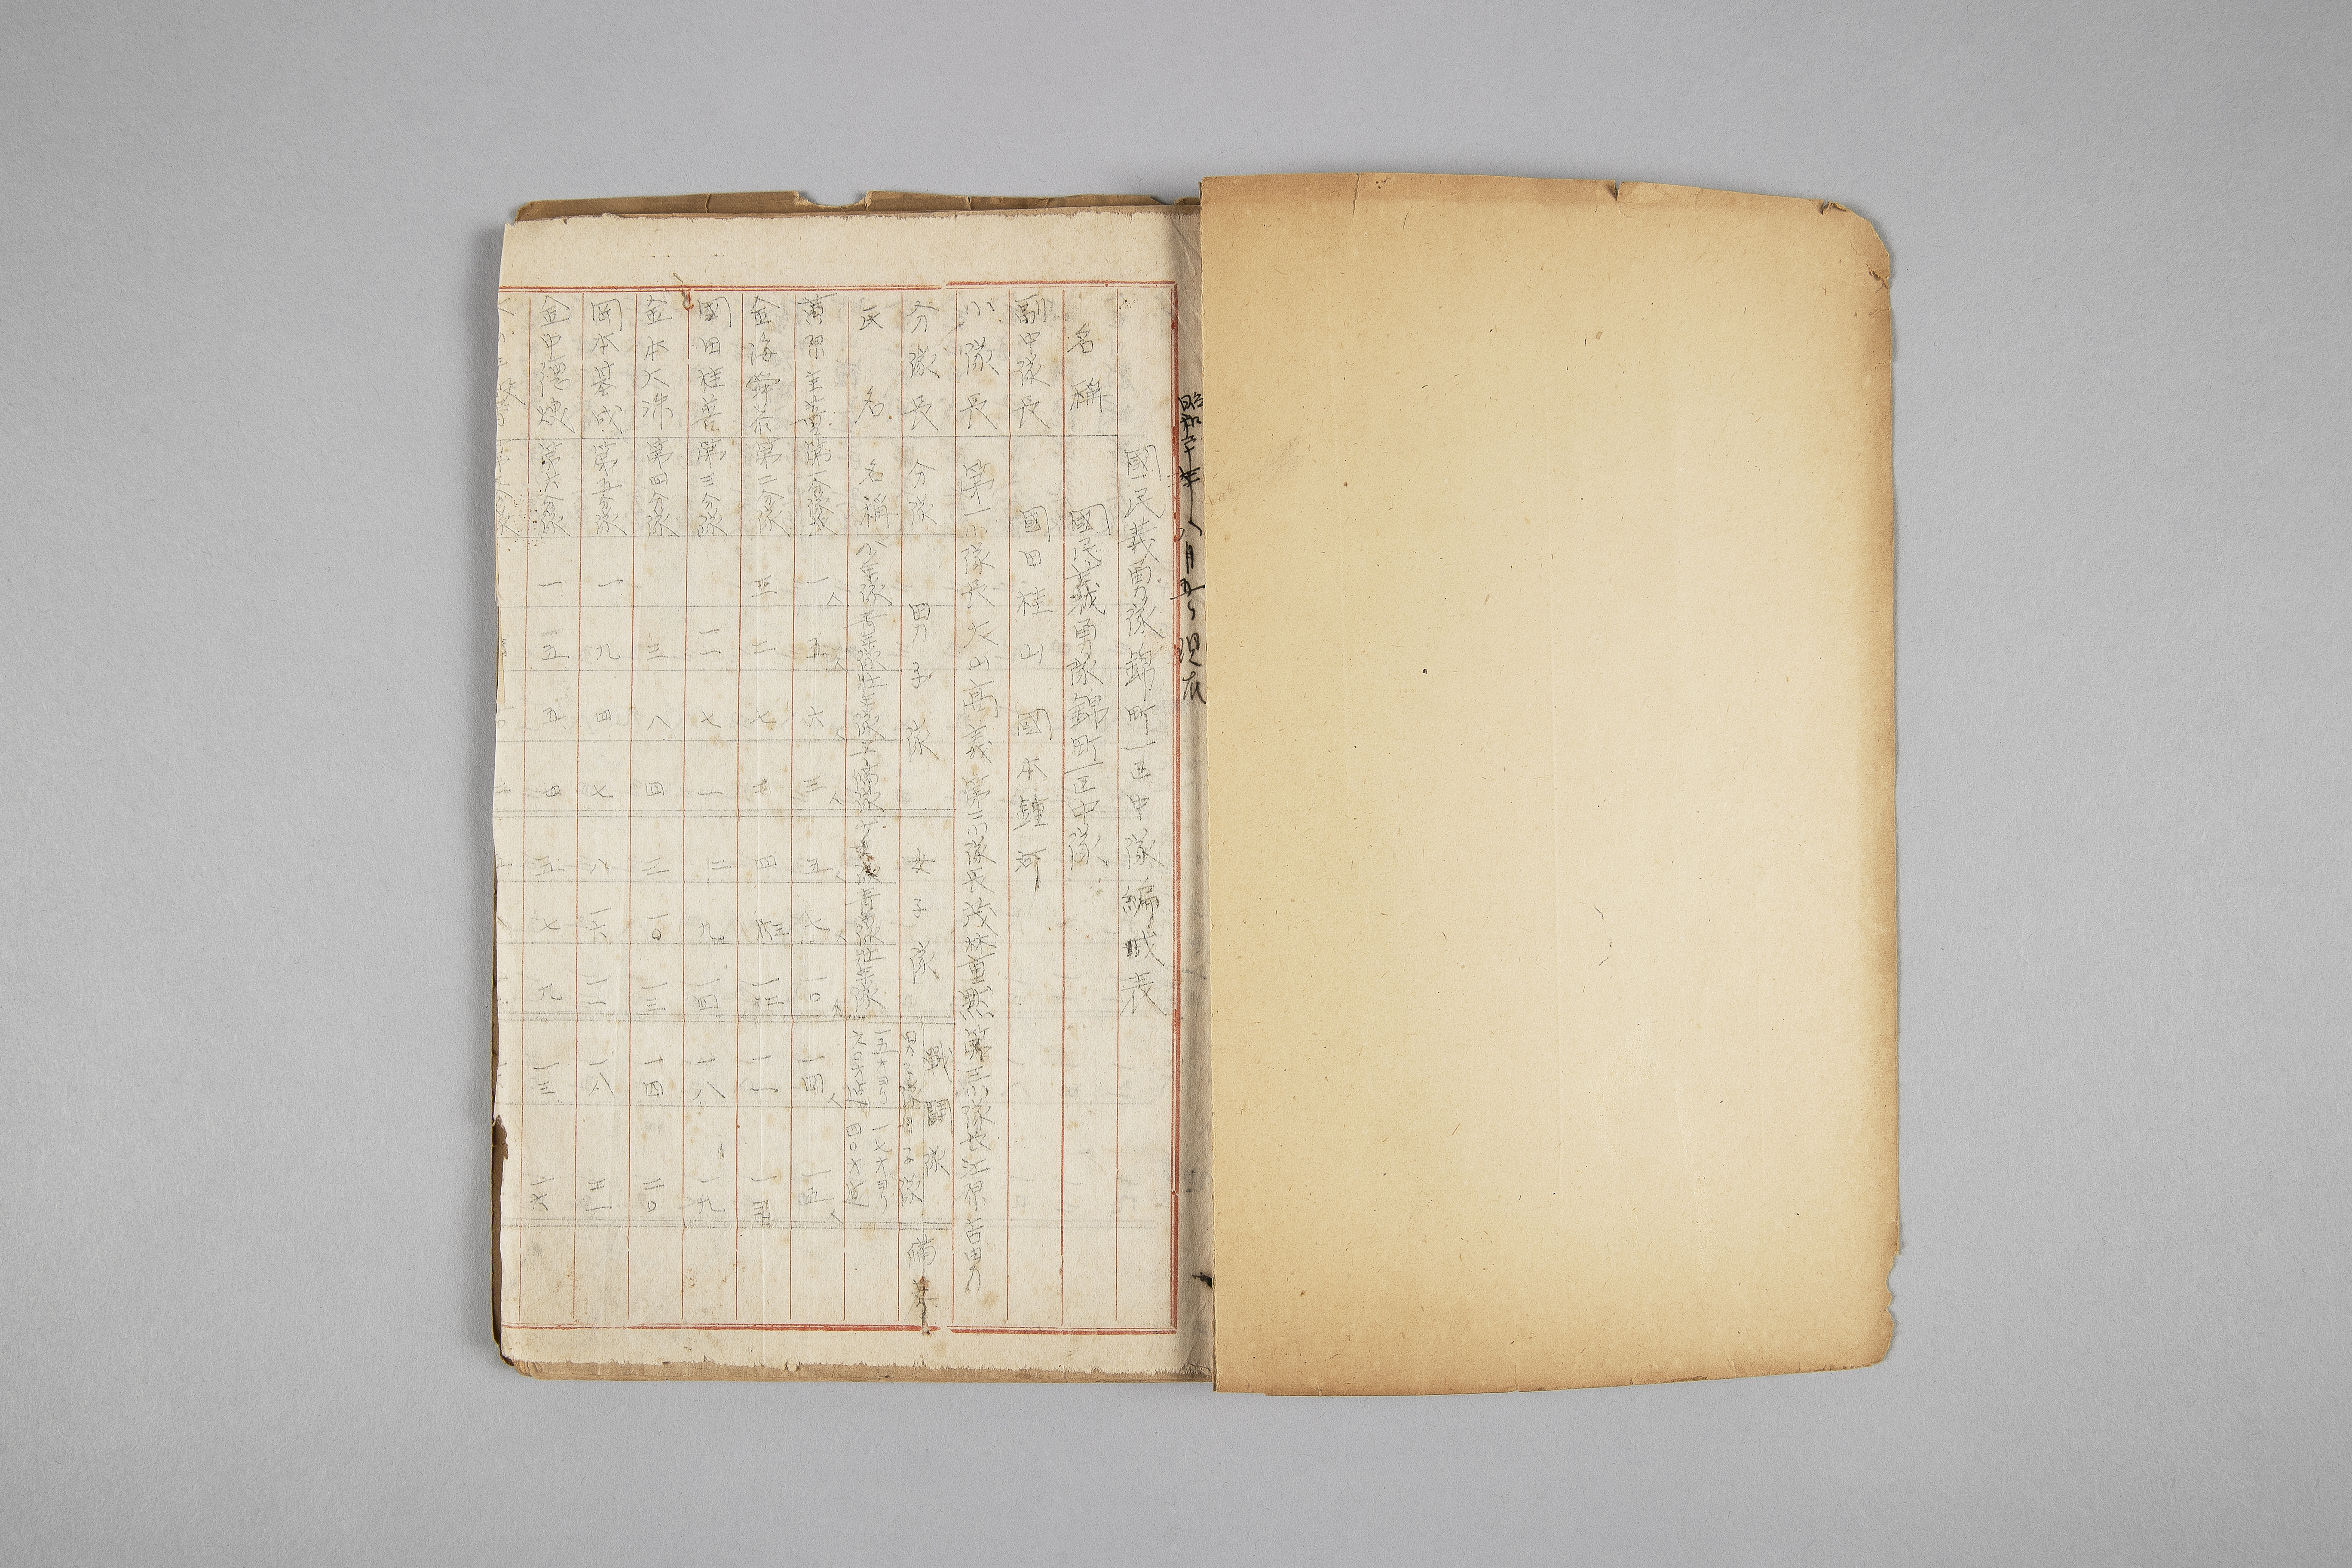 昭和二十年八月五日現在
國民義勇隊錦町一区中隊編成表
名稱 國民義勇隊錦町一区中隊
副中隊長 國田桂山 國本鍾河
小隊長 第一小隊長 大山高義 第二小隊長 茂林重 第三小隊長 江原吉男
分隊長 分隊 男子隊 女子隊 戰鬪隊 備考
氏名 名稱 少年隊 青年隊 壮年隊 青年隊 壮年隊
男子隊 女子隊
黄原 第一分隊 一人 五人 六人 三人 五人 七人 一〇人 一四人 一五人
金海 第二分隊 三 二 七 四 一一
國田桂善 第三分隊 一一 七 一 二 九 一四 一八 一九
金本大洙 第四分隊 三 八 四 三 一〇 一三 一四 二〇
岡本基成 第五分隊 一 九 四 七 八 一六 一二 一八 二一
金中 第六分隊 一 一五 五 四 五 七 九 一三 一六